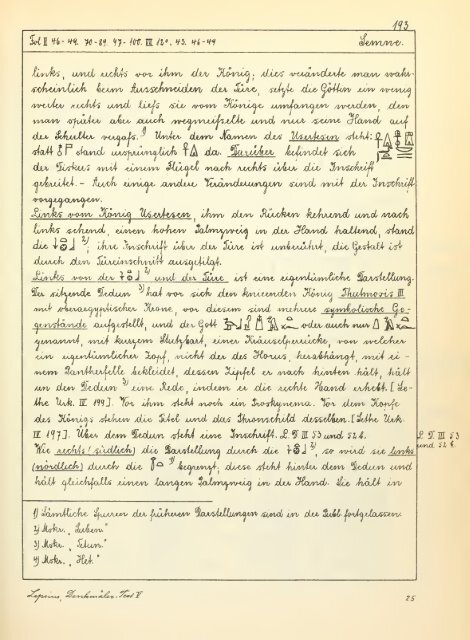 193
Fol II 46-49. 70-89. 97-100. III 12°. 43. 46-49
Semne.
links, und rechts vor ihm der König; dies veränderte man wahr-
scheinlich beim Ausschneiden der Türe, setzte die Göttin ein wenig
weiter rechts und liefs sie vom Könige umfangen werden, den
man später aber auch wegmeifselte und nur seine Hand auf
der Schulter vergafs.1) Unter dem Namen des Usertesen steht:
statt stand ursprünglich da. Darüber befindet sich
der Diskus mit einem Flügel nach rechts über die Inschrift
gebreitet. - Auch einige andere Veränderungen sind mit der Inschrift
vorgegangen.
Links vom König Usertesen, ihm den Rücken kehrend und nach
links sehend, einen hohen Palmzweig in der Hand haltend, stand
die 2), ihre Inschrift über der Türe ist unberührt, die Gestalt ist
durch den Türeinschnitt ausgetilgt.
Links von der 2) und der Türe ist eine eigentümliche Darstellung.
Der sitzende Dedun 3) hat vor sich den knieenden König Thutmosis III
mit oberaegyptischer Krone, vor diesem sind mehrere symbolische Ge-
genstände aufgestellt, und der Gott oder auch nur
genannt, mit kurzem Stutzbart, einer Kräuselperrücke, von welcher
ein eigentümlicher Zopf, nicht der des Horus, herabhängt, mit ei-
nem Pantherfelle bekleidet, dessen Zipfel er nach hinten hält, hält
an den Dedun 3) eine Rede, indem er die rechte Hand erhebt. [Se-
the Urk. IV 199]. Vor ihm steht noch ein Proskynema. Vor dem Kopfe
des Königs stehen die Titel und das Thronschild desselben. [Sethe Urk.
IV 197]. Über dem Dedun steht eine Inschrift. L. D. III 53 und 52 b.
Wie rechts (südlich) die Darstellung durch die 2), so wird sie links
(nördlich) durch die begrenzt, diese steht hinter dem Dedun und
hält gleichfalls einen langen Palmzweig in der Hand. Sie hält in
L. D. III 53
und 52 b.
1) Sämtliche Spuren der früheren Darstellungen sind in der Publ. fortgelassen.
2) Mskr. „Suben."
3) Mskr. „Tetun."
4) Mskr. „Het."
Lepsius, Denkmäler. Text V
25